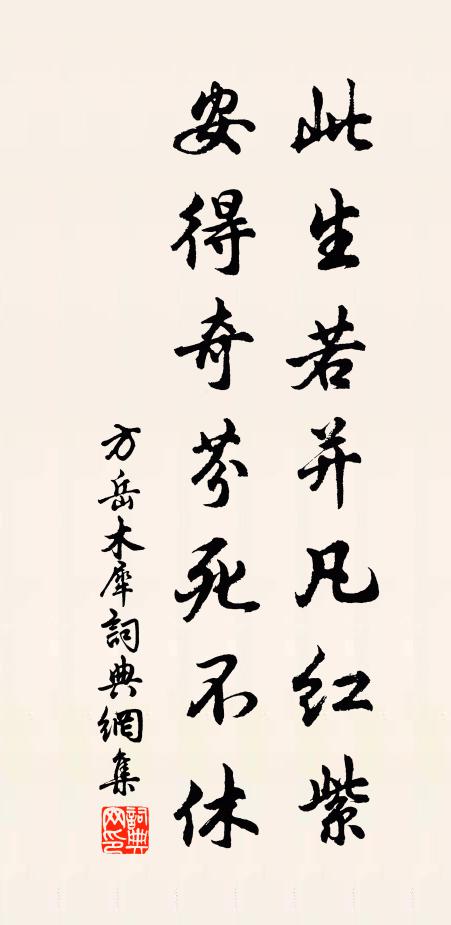 此生若并凡红紫
安得奇芬死不休
方岳木犀詞典網集
詞典网印